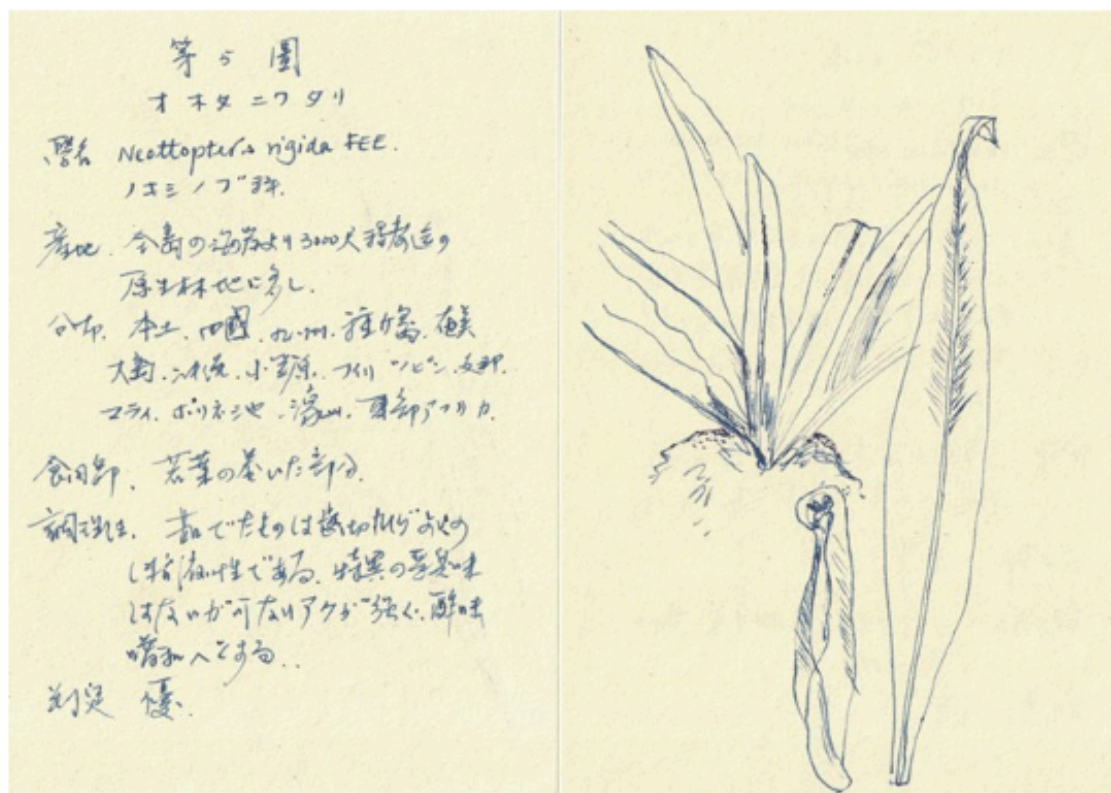 第5圖
オホタニワタリ
學名 Neottopteris rigida FEE.
ノキシノブ科.
産地. 全島の海岸より3000尺程度迄の
原生林地に多し.
分布. 本土. 四國. 九州. 種ケ島. 奄美
大島. 沖縄. 小笠原. フィリッピン. 支那.
マライ. ポリネシヤ. 濠州. 東部アフリカ.
食用部. 若葉の巻いた部分.
調理法. 茹でたものは歯切れがよく
は粘液性である. 特異の臭味
はないが可なりアクが強く. 酢味
噌和へとする..
判定 優.